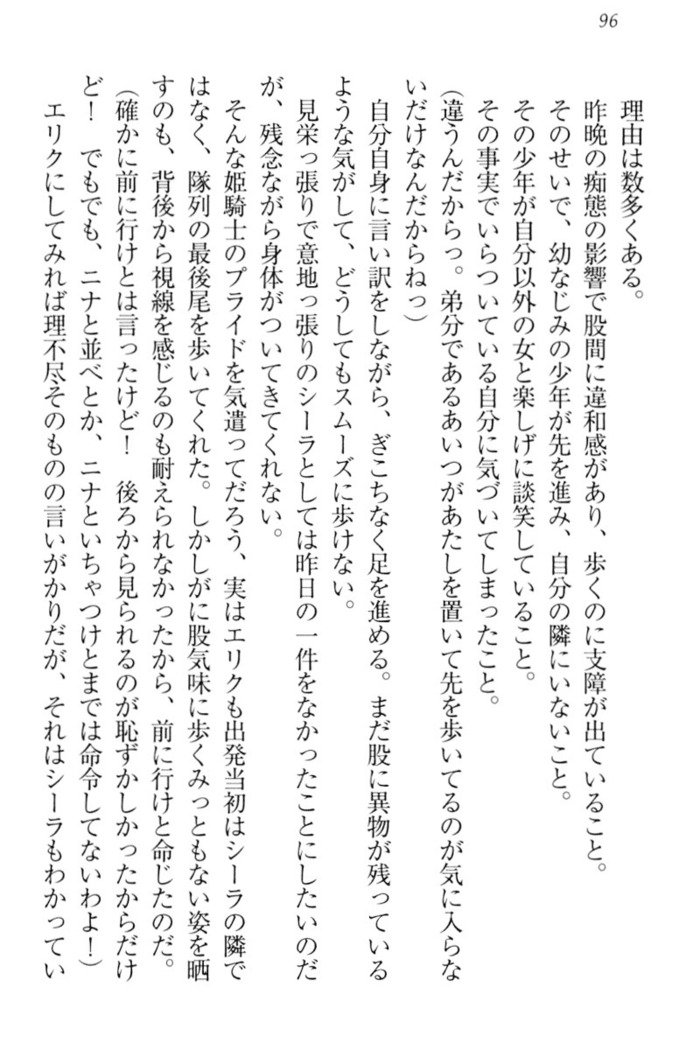 96
理由は数多くある。
昨晩の痴態の影響で股間に違和感があり、歩くのに支障が出ていること。
そのせいで、幼なじみの少年が先を進み、自分の隣にいないこと。
その少年が自分以外の女と楽しげに談笑していること。
その事実でいらついている自分に気づいてしまったこと。
(違うんだからっ。弟分であるあいつがあたしを置いて先を歩いてるのが気に入らな
いだけなんだからねっ)
自分自身に言い訳をしながら、ぎこちなく足を進める。まだ股に異物が残っている
ような気がして、どうしてもスムーズに歩けない。
見栄っ張りで意地っ張りのシーラとしては昨日の一件をなかったことにしたいのだ
が、残念ながら身体がついてきてくれない。
そんな姫騎士のプライドを気遣ってだろう、実はエリクも出発当初はシーラの隣で
はなく、隊列の最後尾を歩いてくれた。しかしがに股気味に歩くみっともない姿を晒
すのも、背後から視線を感じるのも耐えられなかったから、前に行けと命じたのだ。
(確かに前に行けとは言ったけど! 後ろから見られるのが恥ずかしかったからだけ
ど! でもでも、ニナと並べとか、ニナといちゃつけとまでは命令してないわよ!)
エリクにしてみれば理不尽そのものの言いがかりだが、それはシーラもわかってい